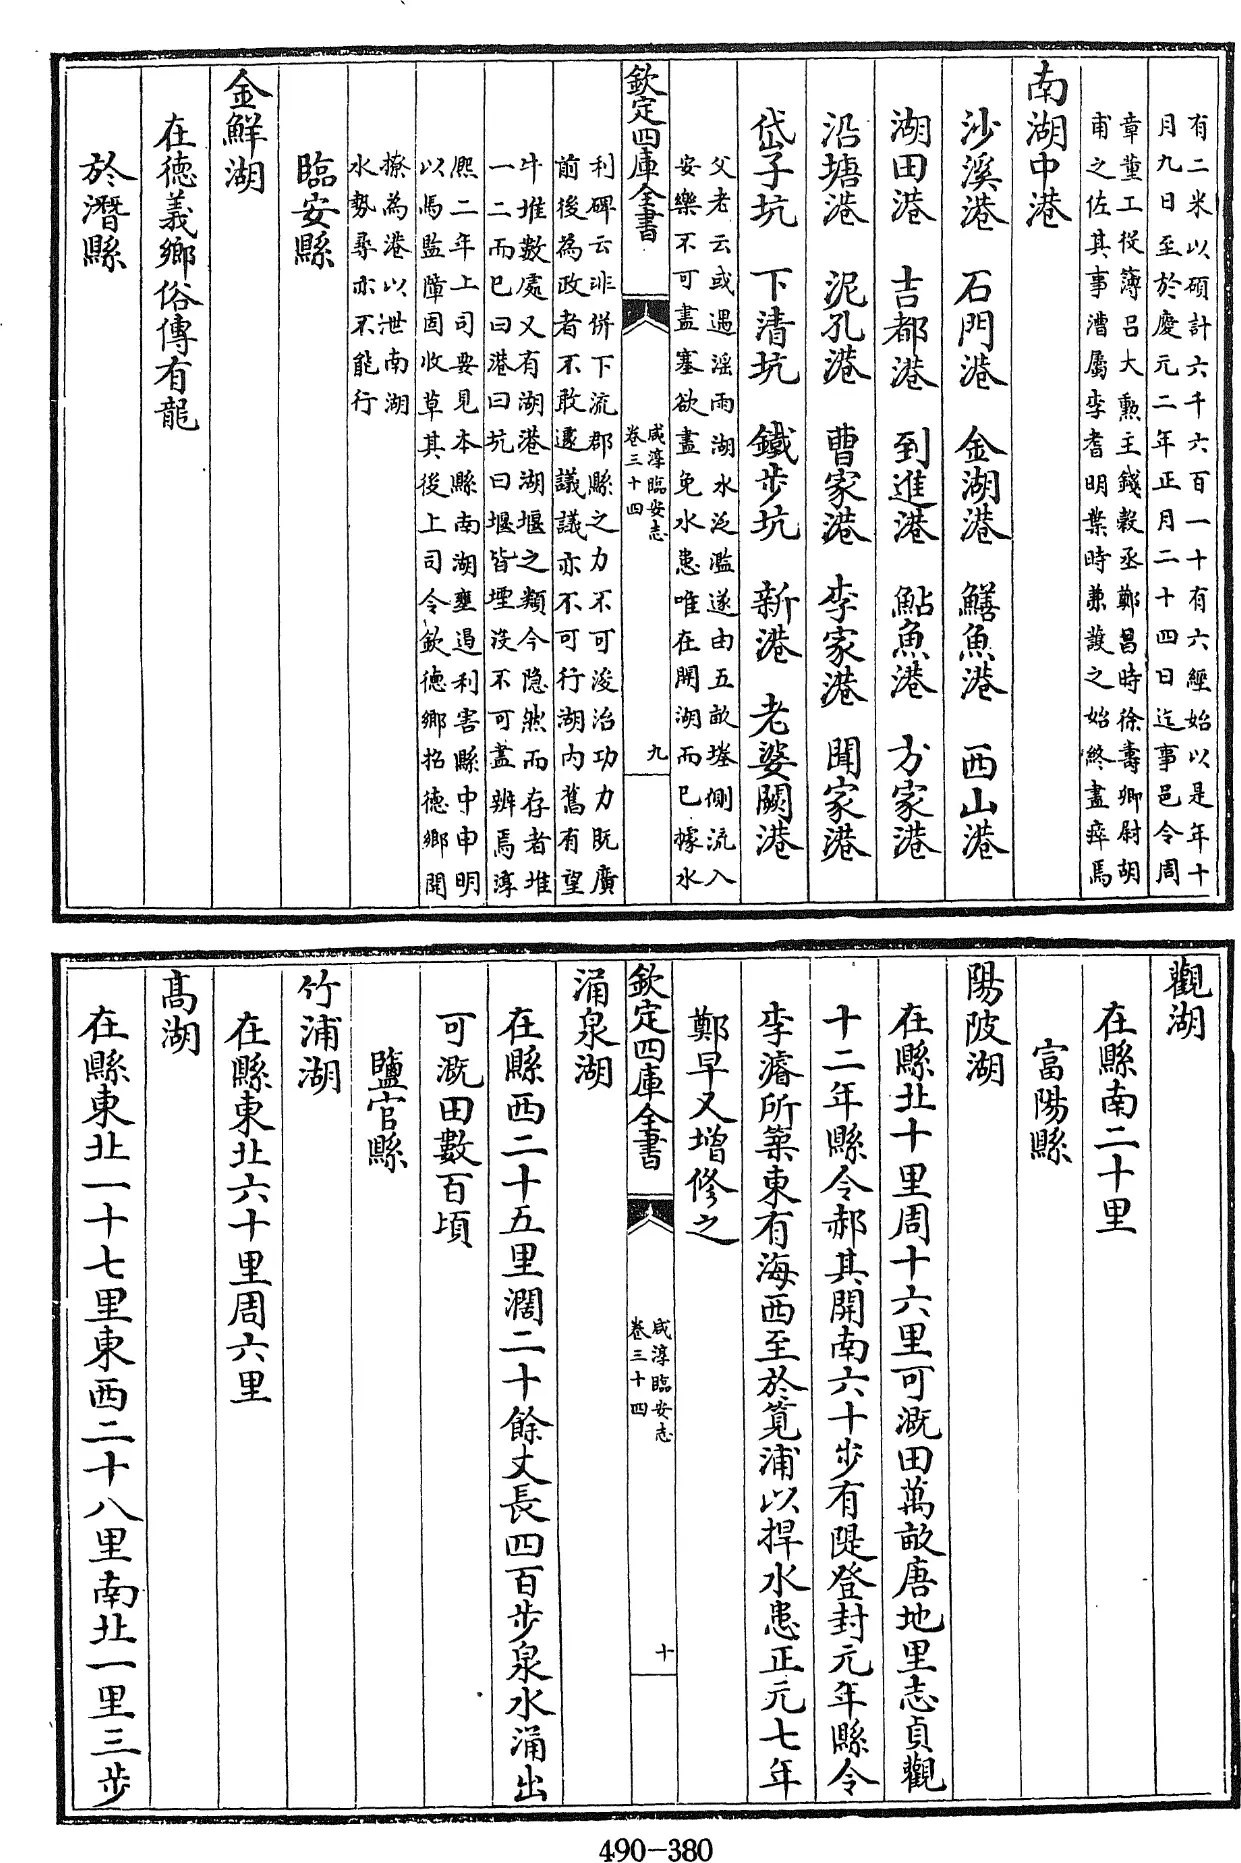 有二米以碩計六千六百一十有六經始以是年十
月九日至於慶元二年正月二十四日迄事邑令周
章董工役簿呂大勲主錢穀丞鄭昌時徐壽卿尉胡
甫之佐其事漕屬李耆明業時兼護之始終盡瘁焉
南湖中港
沙溪港 石門港 金湖港 鱔魚港 西山港
湖田港 吉都港 到進港 鮎魚港 方家港
沿塘港 泥孔港 曹家港 李家港 聞家港
岱子坑 下清坑 鐵步坑 新港 老婆闕港
父老云或遇滛雨湖水泛濫遂由五畝塍側流入
安樂不可盡塞欲盡免水患唯在開湖而已據水
欽定四庫全書
咸淳臨安志
卷三十四
九
利碑云非併下流郡縣之力不可浚治功力既廣
前後為政者不敢遽議議亦不可行湖内舊有望
牛堆數處又有湖港湖堰之類今隐然而存者堆
一二而已曰港曰坑曰堰皆堙没不可盡辨焉淳
熈二年上司要見本縣南湖壅遏利害縣中申明
以馬監障固收草其後上司令欽德鄉招德鄉開
撩為港以泄南湖
水勢尋亦不能行
臨安縣
金鮮湖
在德義鄉俗傳有龍
於潛縣
觀湖
在縣南二十里
富陽縣
陽陂湖
在縣北十里周十六里可溉田萬畝唐地里志貞觀
十二年縣令郝其開南六十步有隄登封元年縣令
李濬所築東有海西至於筧浦以捍水患正元七年
鄭早又增修之
欽定四庫全書
咸淳臨安志
卷三十四
十
涌泉湖
在縣西二十五里濶二十餘丈長四百步泉水涌出
可溉田數百頃
鹽官縣
竹浦湖
在縣東北六十里周六里
髙湖
在縣東北一十七里東西二十八里南北一里三步
490-380